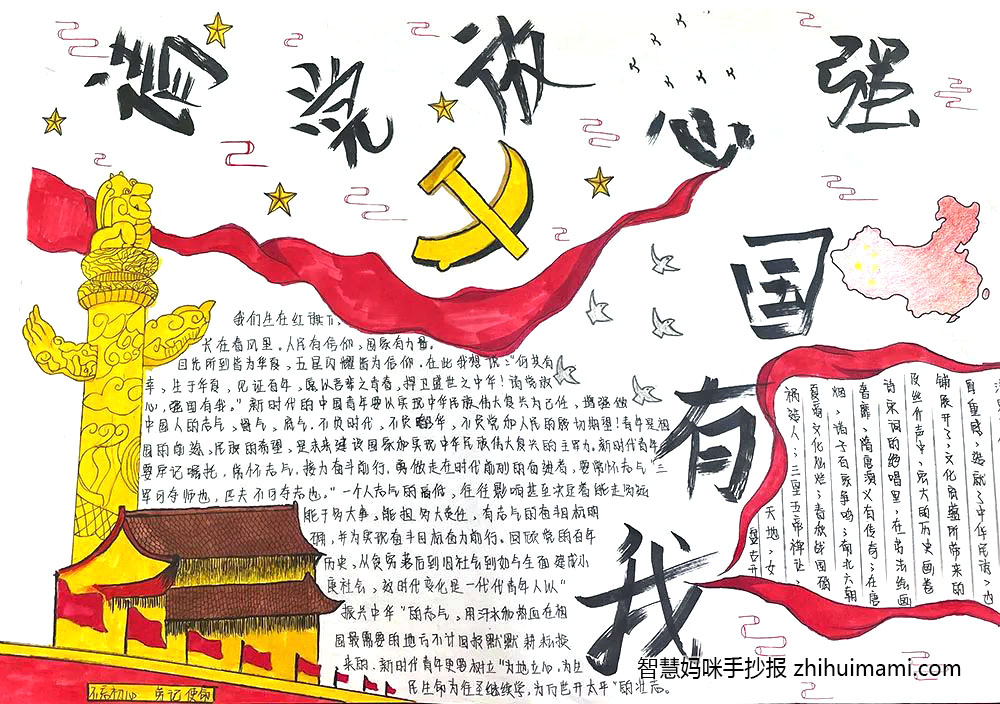 请党放心 强国有我
我们生在红旗下,
长在春风里。人民有信仰,国家有力量。
目光所到皆为华夏,五星闪耀皆为信仰,在此我想说:“何其有
幸,生于华夏,见证百年,愿以吾辈之青春,捍卫盛世之中华!请党放
心,强国有我。”新时代的中国青年要以实现中华民族伟大复兴为己任,增强做
中国人的志气,骨气,底气,不负时代,不负韶华,不负党和人民的殷切期望!青年是祖
国的前途,民族的希望,是未来建设国家和实现中华民族伟大复兴的主力军。新时代青年
要牢记嘱托,胸怀志气,接力奋斗前行。勇做走在时代前列的奋进者,要常怀志气“三
军可夺师也,匹夫不可夺志也。”一个人志气的高低,往往影响甚至决定着能走多远
能干多大事,能担多大责任,有志气的有丰目标明
确,并为实现奋斗目标奋力前行。回顾党的百年
历史,从贫穷落后到旧社会到如今全面建成小
康社会,这时代变化是一代代青年人以“
振兴中华”的志气,用汗水和热血在祖
国最需要的地方不计回报默默耕耘换
来的。新时代青年更要树立“为地立心,为生
民生命为往圣继绝学,为万世开太平”的壮志。
天地,女
祸造人;三皇五帝禅让,
夏商文化灿烂;春秋战国硝
烟,诸子百家争鸣;南北六朝
香靡,隋唐演义有传奇;在唐
诗宋词的绝唱里,在书法绘画
及丝竹声中,宏大的历史画卷
铺展开了;文化底蕴所带来的
厚重感,造就了中华民族;也
不忘初心 牢记使命
智慧妈咪手抄报 zhihuimami.com